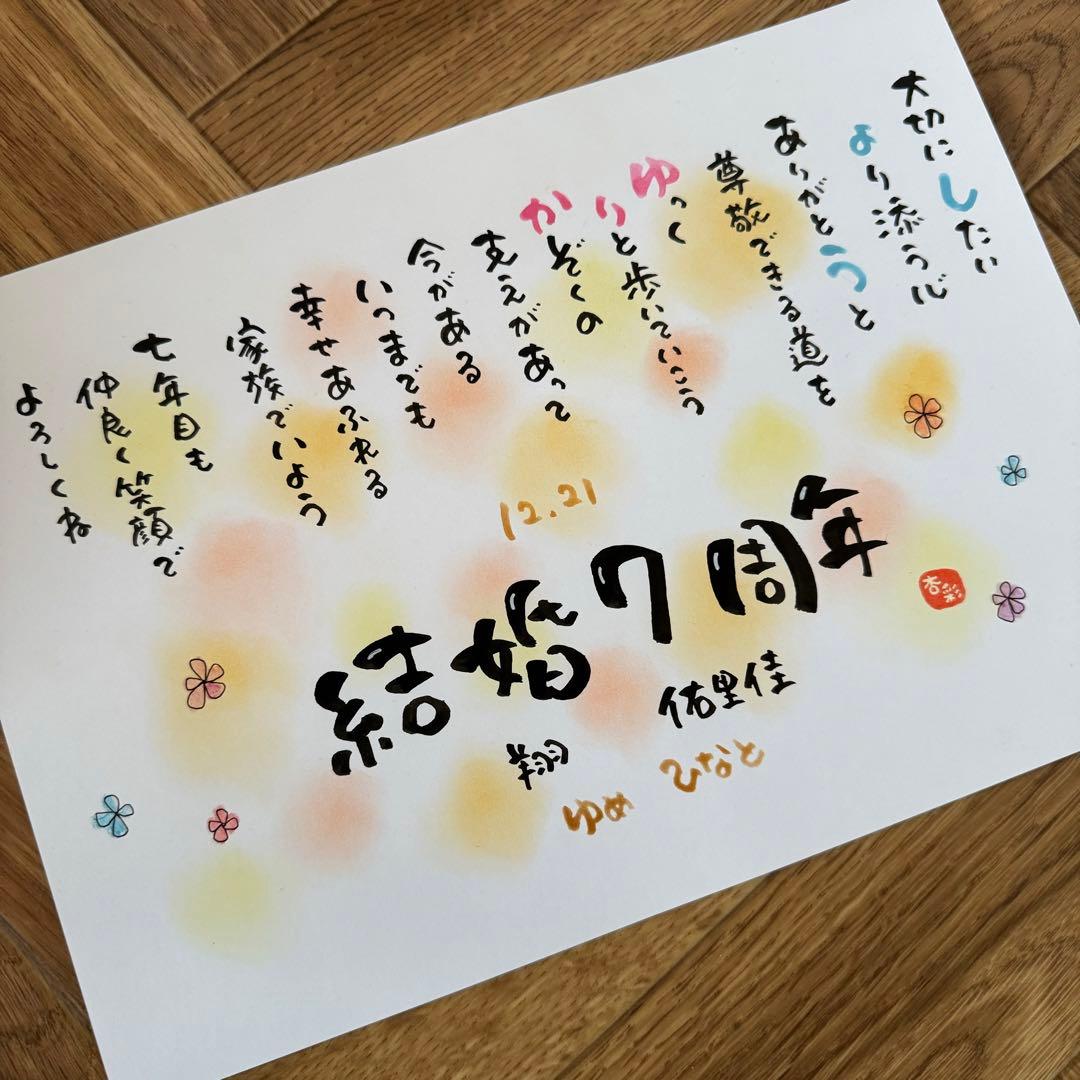 大切にしたい
より添う心
ありがとうと
尊敬できる道を
ゆっく
りと歩いていこう
かぞくの
支えがあって
今がある
いつまでも
幸せあふれる
家族でいよう
七年目も
仲良く笑顔で
よろしくね
12.21
結婚7周年
翔
佑里佳
ゆめ
ひなと
杏彩